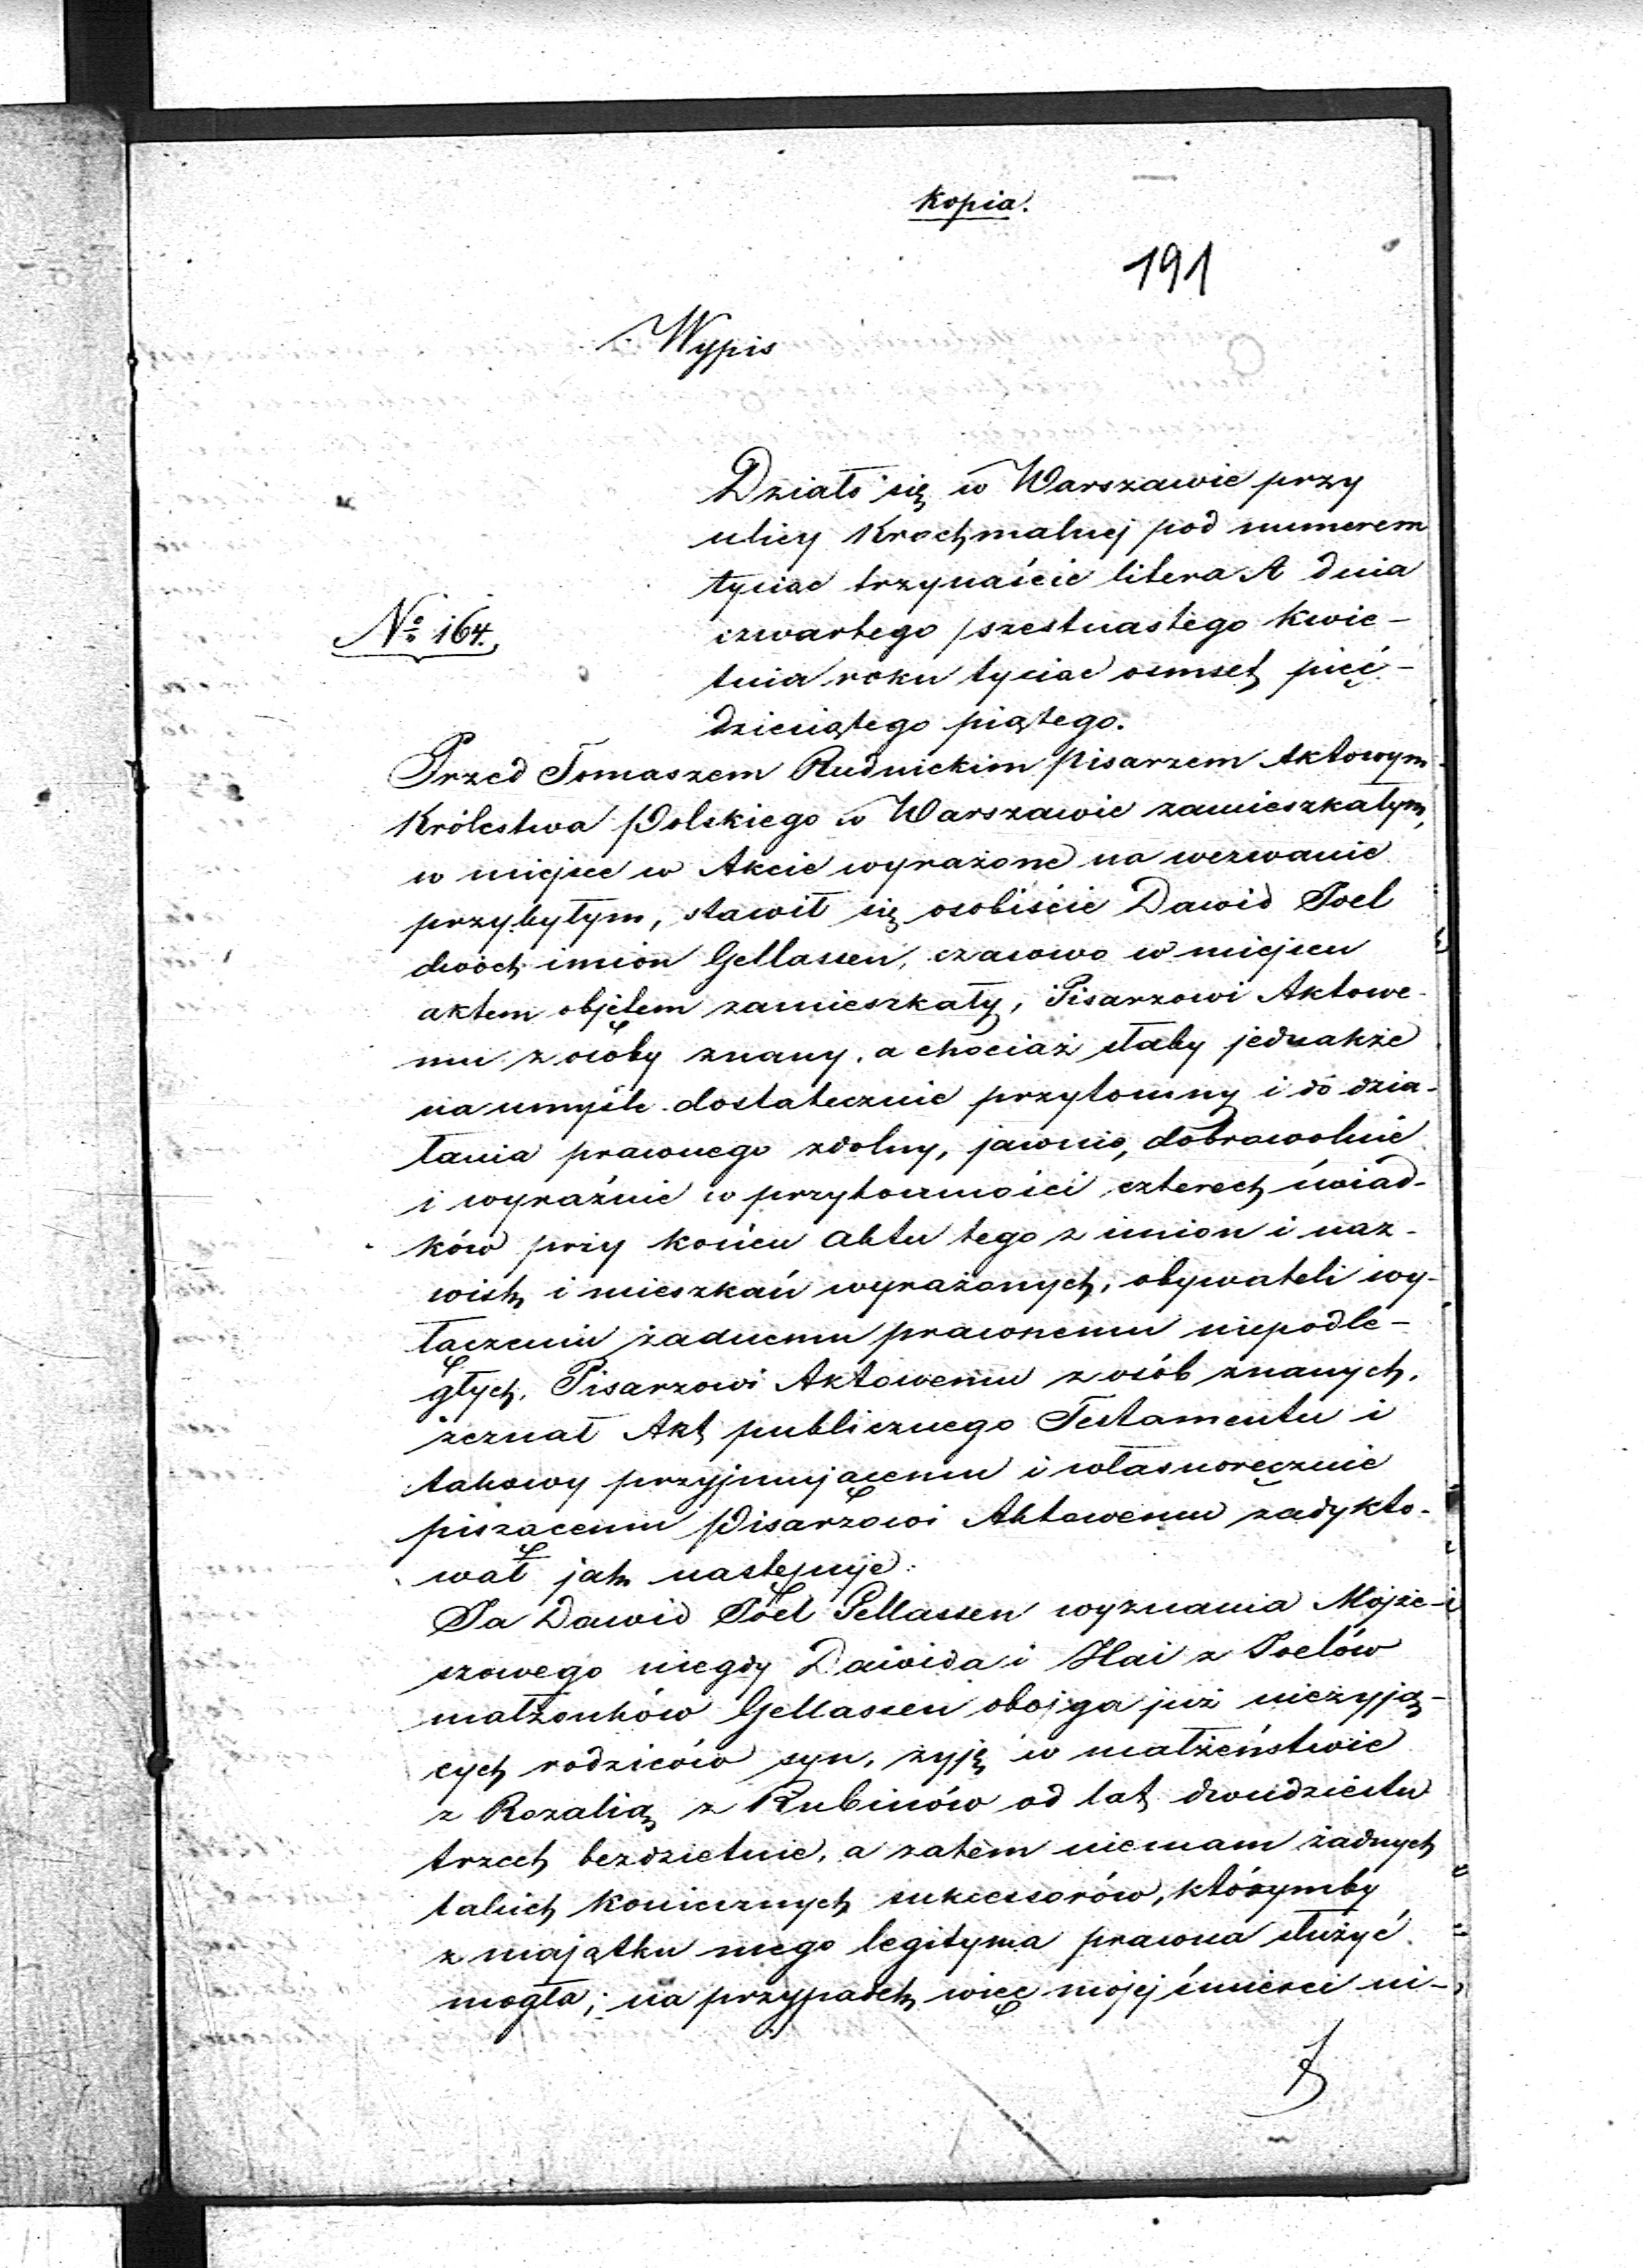 Kopia.
191
Wypis
Działo się w Warszawie przy
ulicy Krochmalnej pod numerem
tysiąc trzynaście litera A dnia
No 164.
czwartego /szestnastego Kwie-
tnia roku tysiąc osmset pięć-
dziesiątego piątego.
Przed Tomaszem Rudnickim Pisarzem Aktowym
Królestwa Polskiego w Warszawie zamieszkałym,
w miejsce w Akcie wyrażone na wezwanie
przybyłym, stawił się osobiście Dawid Joel
dwóch imion Gellassen, czasowo w miejscu
aktem objętem zamieszkały, Pisarzowi Aktowe-
mu z osoby znany, a chociaż słaby jednakże
na umyśle dostatecznie przytomny i do dzia-
łania prawnego zdolny, jawnie, dobrowolnie
i wyraźnie w przytomności czterech świad-
ków przy końcu aktu tego z imion i naz-
wisk i mieszkań wyrażonych, obywateli wy-
łączeniu żadnemu prawnemu niepodle-
głych, Pisarzowi Aktowemu z osób znanych,
zeznał Akt publicznego Testamentu i
takowy przyjmującemu i własnoręcznie
piszącemu Pisarzowi Aktowemu zadykto-
wał jak następuje:
Ja Dawid Joel Gellassen wyznania Mojże-
szowego niegdy Dawida i Hai z Joelów
małżonków Gellassen obojga już nieżyją-
cych rodziców syn, żyję w małżeństwie
z Rozalią z Rubinów od lat dwudziestu
trzech bezdzietnie, a zatem niemam żadnych
takich koniecznych sukcessorów, którymby
z majątku mego legityma prawna służyć
mogła; na przypadek więc mojej śmierci ni-